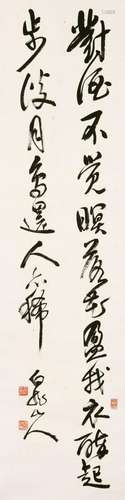 對酒不覺暝落花盈我衣醉起
步溪月鳥還人亦稀
山人